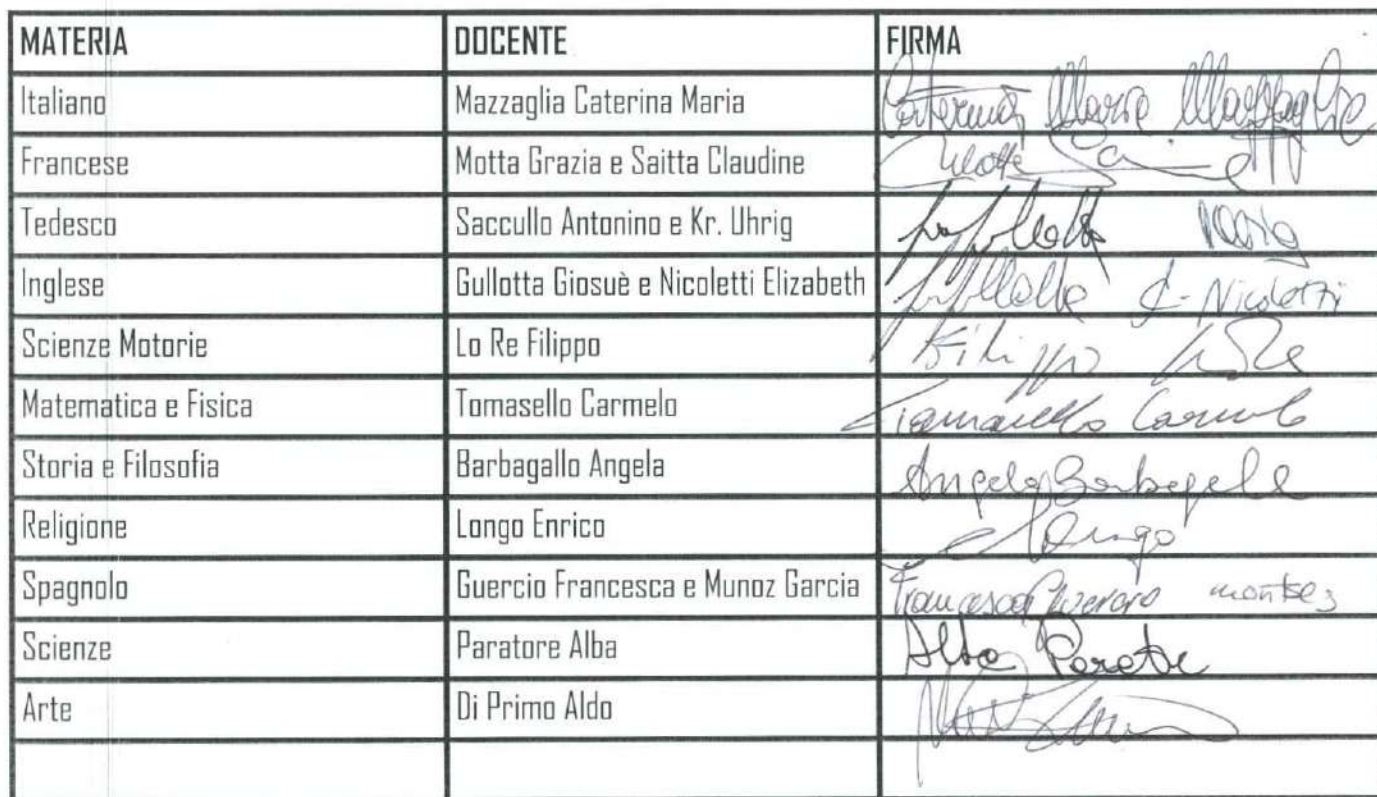 MATERIA DOCENTE FIRMA
Italiano Mazzaglia Caterina Maria Caterina Maria Mazzaglia
Francese Motta Grazia e Saitta Claudine Motta
Tedesco Saccullo Antonino e Kr. Uhrig
Inglese Gullotta Giosuè e Nicoletti Elizabeth E. Nicoletti
Scienze Motorie Lo Re Filippo Filippo Lo Re
Matematica e Fisica Tomasello Carmelo Tomasello Carmelo
Storia e Filosofia Barbagallo Angela Angela Barbagallo
Religione Longo Enrico Longo
Spagnolo Guercio Francesca e Munoz Garcia Francesca Guercio
Scienze Paratore Alba Alba Paratore
Arte Di Primo Aldo